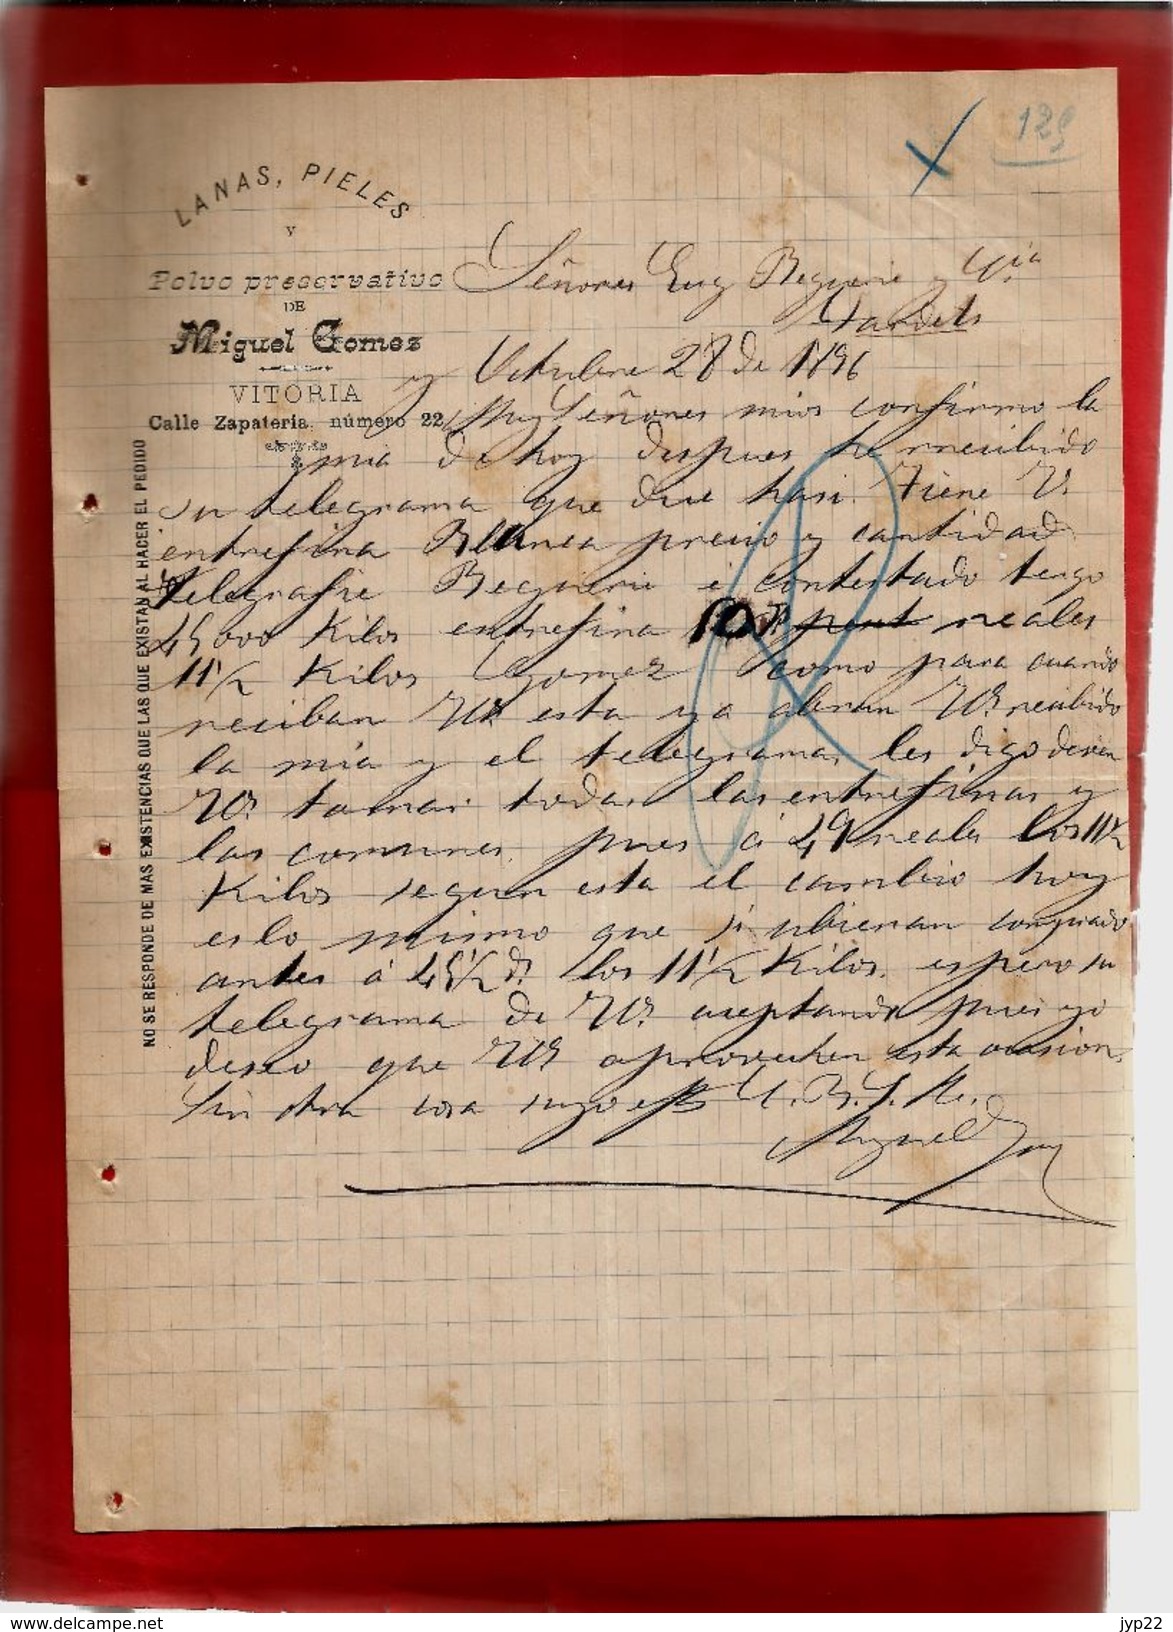 129
LANAS, PIELES
Y
Polvo preservativo
DE
Miguel Gomez
VITORIA
Calle Zapateria, número 22
NO SE RESPONDE DE MAS EXISTENCIAS QUE LAS QUE EXISTAN AL HACER EL PEDIDO
Señores Eug Beguerie y Cia
Octubre 28 de 1896
Muy Señores mios confirmo la
mia de hoy despues he rrecibido
su telegrama que dice hasi. Tiene V.
entrefina Blanca precio y cantidad
telegrafie Beguerie é contestado tengo
45000 Kilos entrefina 50 reales
11½ Kilos Gomez como para cuando
reciban Vds esta ya abran Vds recibido
la mia y el telegrama, les digo deven
Vds tomar todas las entrefinas y
las comunes, pues á 49 reales los 11½
Kilos segun esta el cambio hoy
es lo mismo que si ubieran comprado
antes á 45½ rs los 11½ Kilos. espero su
telegrama de Vds aceptando pues yo
deseo que Vds aprovechen esta ocasion.
Sin otra cosa suyo affo Q. B. S. M.
Miguel Gomez
delcampe.net
jyp22